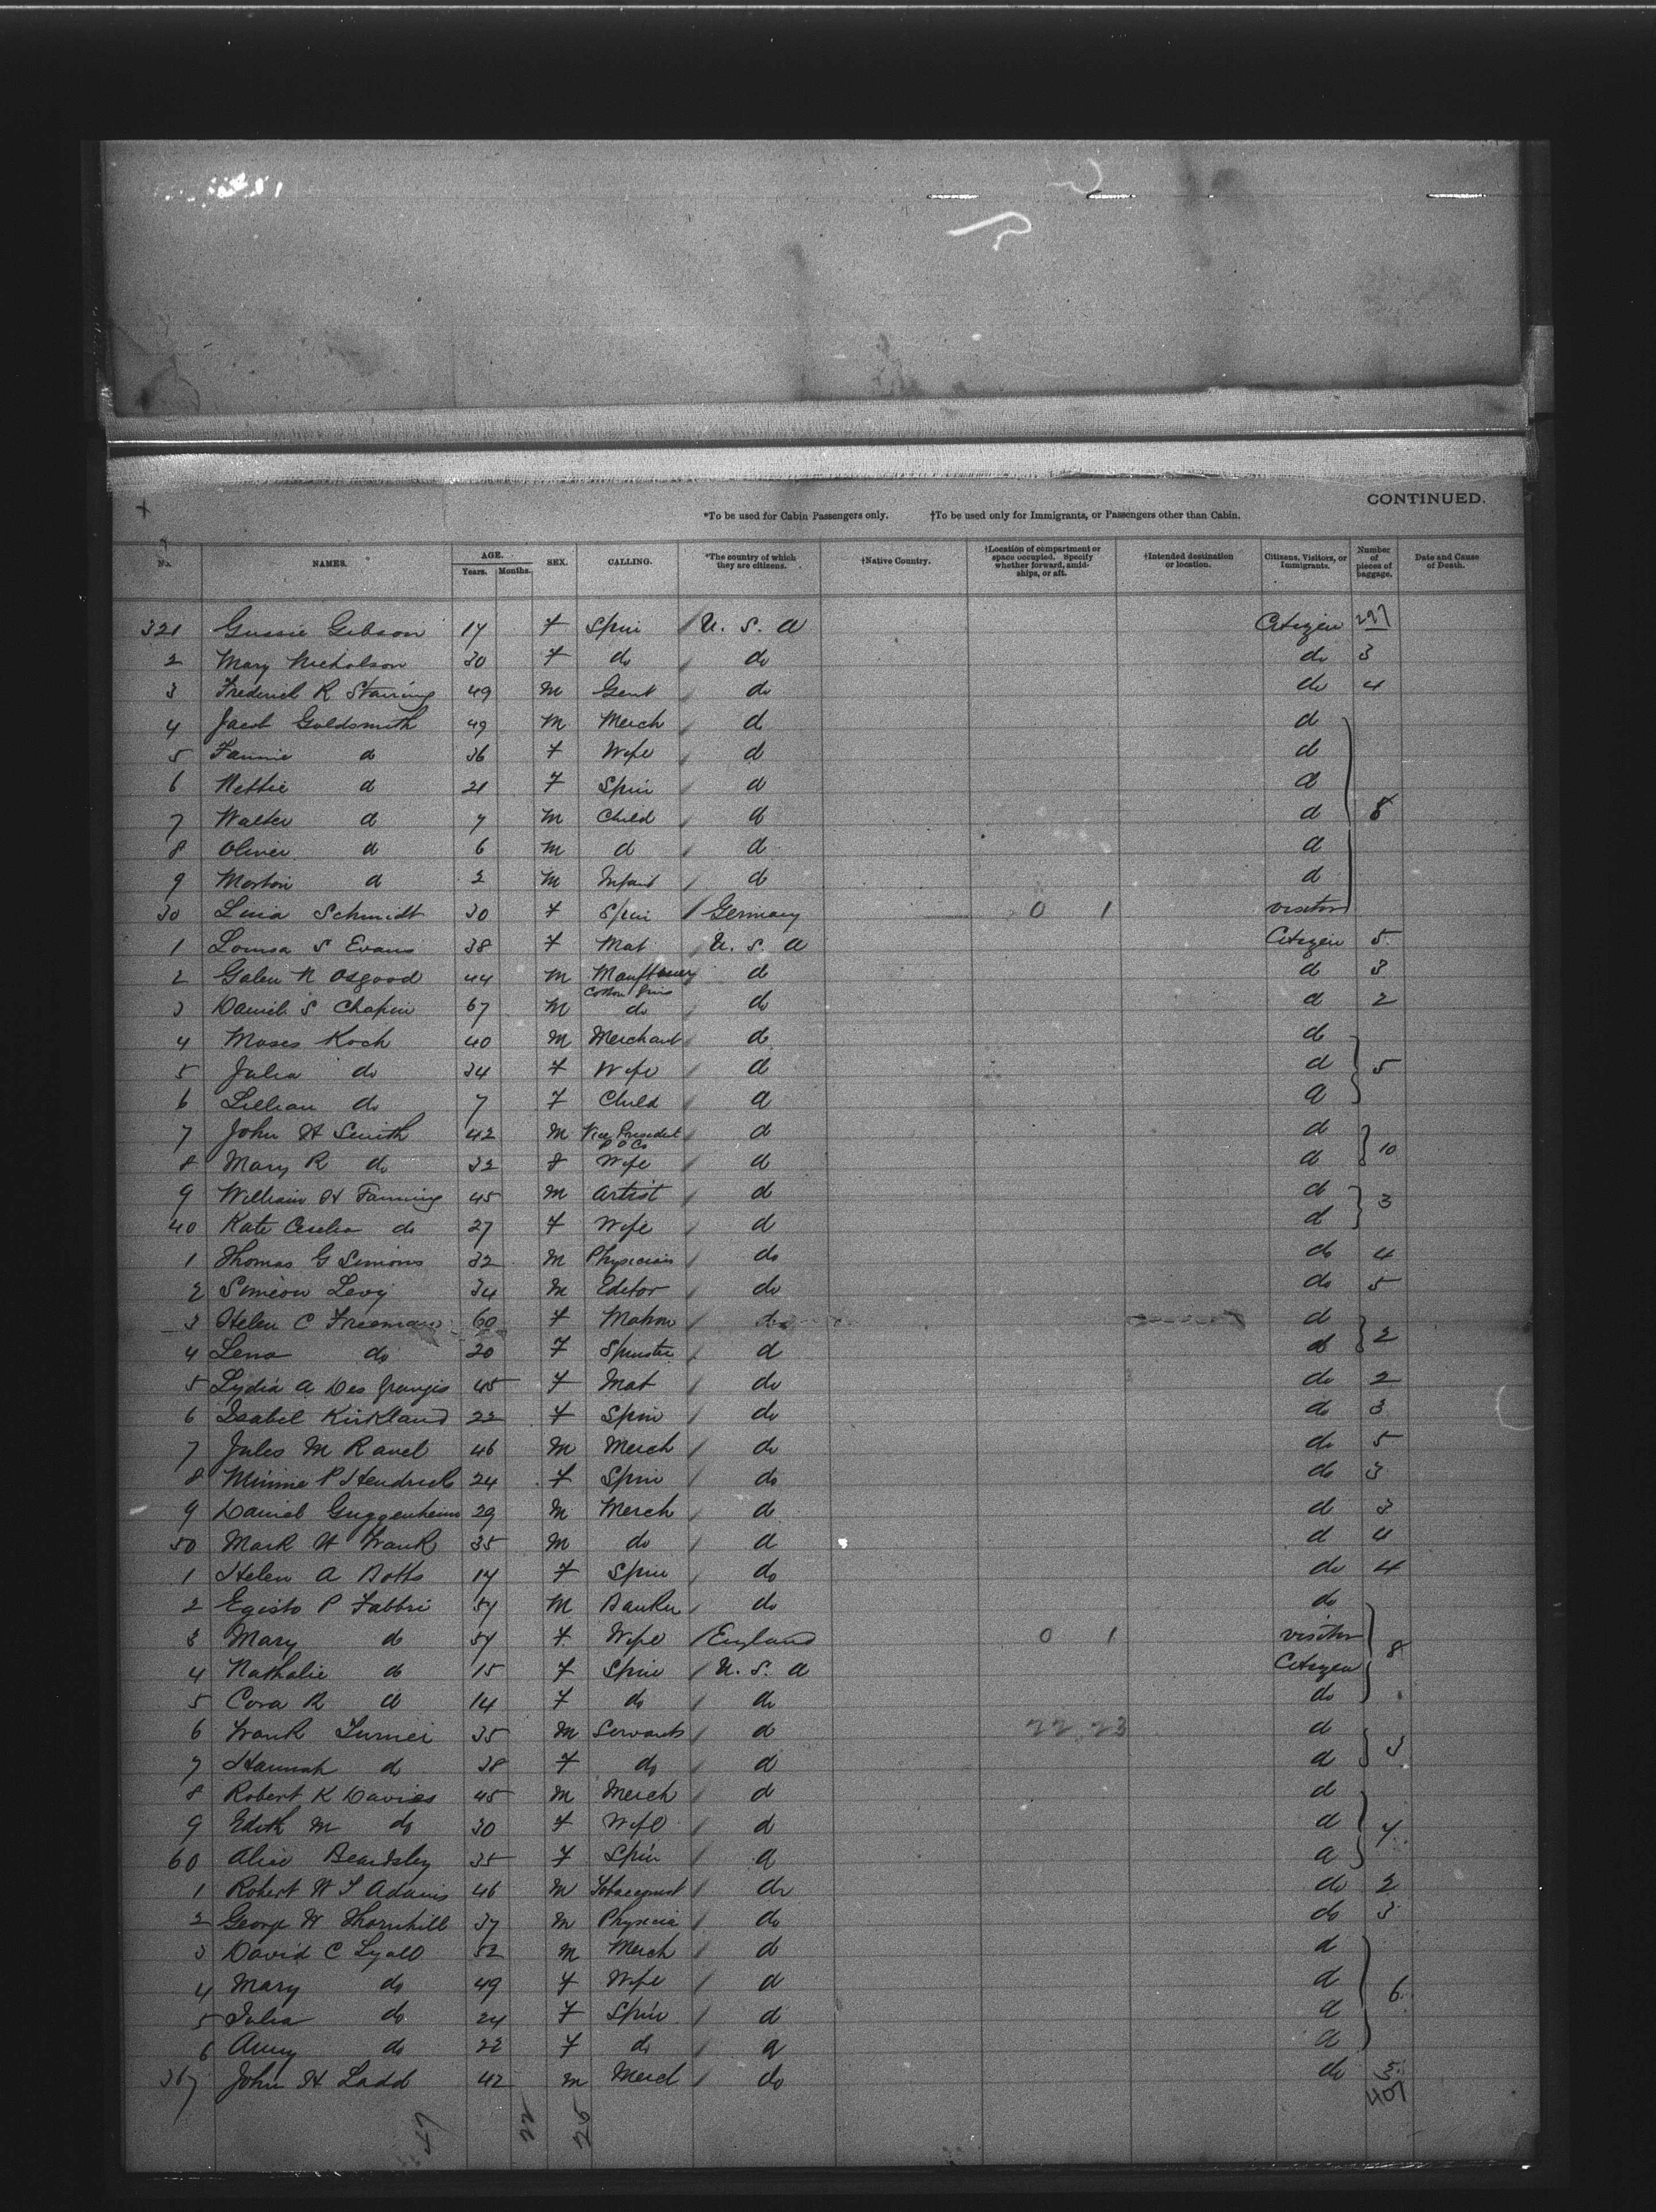 CONTINUED.
*To be used for Cabin Passengers only. †To be used only for Immigrants, or Passengers other than Cabin.
No. NAMES. AGE. Years. Months. SEX. CALLING. *The country of which they are citizens. †Native Country. †Location of compartment or space occupied. Specify whether forward, amidships, or aft. †Intended destination or location. Citizens, Visitors, or Immigrants. Number of pieces of baggage. Date and Cause of Death.
321 Gussie Gibson 17 F Spin U. S. A Citizen 297
2 Mary Nicholson 30 F do do do 3
3 Frederick R Starring 49 M Gent do do 4
4 Jacob Goldsmith 49 M Merch d d
5 Fannie d 36 F Wife d d
6 Nettie d 21 F Spin d d
7 Walter d 7 M Child d d 8
8 Oliver d 6 M d d d
9 Morton d 2 M Infant d d
30 Lina Schmidt 30 F Spin Germany 0 1 visitor
1 Louisa S Evans 38 F Mat U. S. A Citizen 5
2 Galen N Osgood 44 M Cotton d d 3
3 Daniel S Chapin 67 M do do d 2
4 Moses Koch 40 M Merchant d d
5 Julia do 34 F Wife d d 5
6 Lillian do 7 F Child d d
7 John H Smith 42 M Vice President d d
8 Mary R do 32 F Wife d d 10
9 William H Fanning 45 M Artist d d 3
40 Kate Cecelia do 27 F Wife d d
1 Thomas G Simons 32 M Physician do do 4
2 Simeon Levy 34 M Editor do do 5
3 Helen C Freeman 60 F Matron do d
4 Lena do 20 F Spinster d d 2
5 Lydia A Des Grangis 45 F Mat do do 2
6 Isabel Kirkland 22 F Spin do do 3
7 Jules M Ravel 46 M Merch do do 5
8 Minnie P Hendrick 24 F Spin do do 3
9 Daniel Guggenheim 29 M Merch d d 3
50 Mark W Frank 35 M do d d 4
1 Helen A Botts 17 F Spin do do 4
2 Egisto P Fabbri 57 M Banker do do
3 Mary do 57 F Wife England 0 1 visitor 8
4 Nathalie do 15 F Spin U. S. A Citizen
5 Cora R d 14 F do do do
6 Frank Turner 35 M Servants d 22 23 d 3
7 Hannah do 38 F do d d
8 Robert K Davies 45 M Merch d d
9 Edith M do 30 F Wife d d 4
60 Alice Beardsley 35 F Spin d d
1 Robert W S Adams 46 M Tobacconist do do 2
2 George W Thornhill 37 M Physicia do do 3
3 David C Lyall 52 M Merch d d
4 Mary do 49 F Wife d d 6
5 Julia do 24 F Spin d d
6 Amy do 22 F do d d
367 John H Ladd 42 M Merch do do 5
407
47 22 25